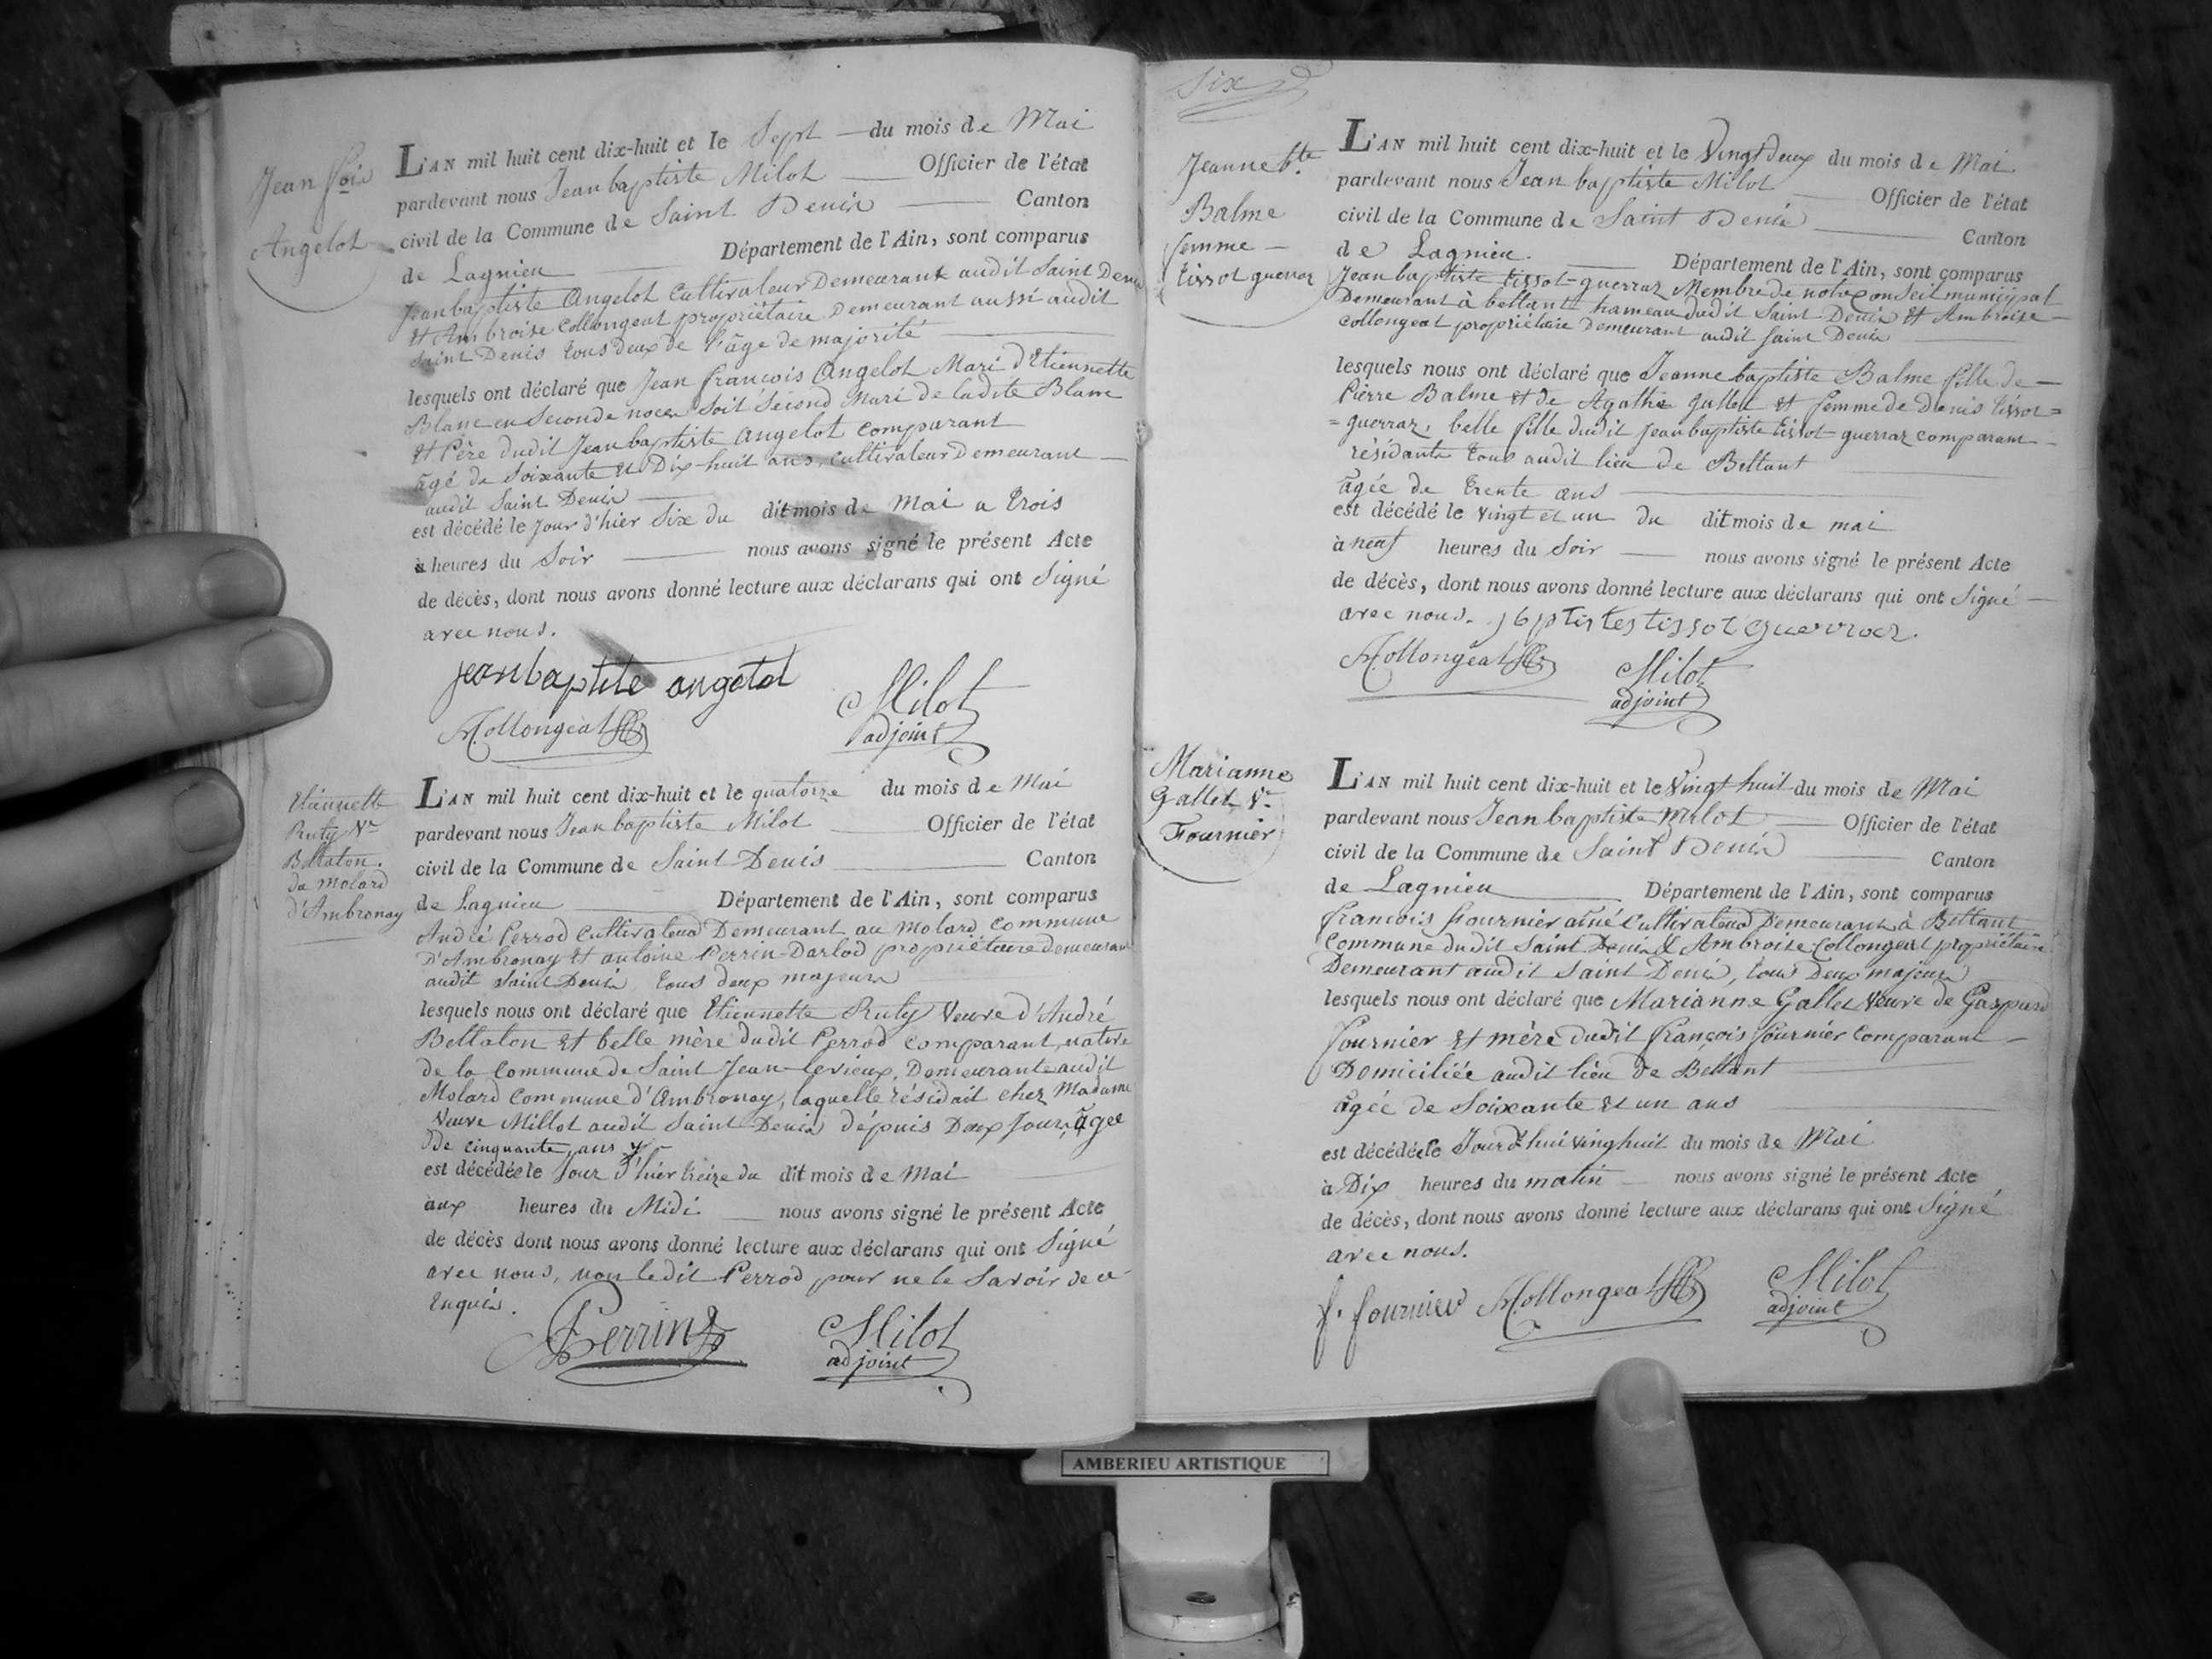 Jean fois
Angelot
L'AN mil huit cent dix-huit et le Sept du mois de Mai
pardevant nous Jean baptiste Milot Officier de l'état
civil de la Commune de Saint Denis Canton
de Lagnieu Département de l'Ain, sont comparus
Jean baptiste Angelot Cultivateur Demeurant audit Saint Denis
Et Ambroise Collongeat propriétaire Demeurant aussi audit
Saint Denis tous deux de l'âge de majorité
lesquels ont déclaré que Jean françois Angelot Mari d'Etiennette
Blanc en Seconde noces Soit Second Mari de ladite Blanc
Et Père dudit Jean baptiste Angelot Comparant
âgé de Soixante et Dix-huit ans, cultivateur Demeurant
audit Saint Denis
est décédé le Jour d'hier Six du dit mois de Mai a trois
à heures du Soir nous avons signé le présent Acte
de décès, dont nous avons donné lecture aux déclarans qui ont Signé
avec nous.
jeanbaptite angetot
A. Collongeat Milot
adjoint
Etiennette
Ruty Ve
Bellaton.
du Molard
d'Ambronay
L'AN mil huit cent dix-huit et le quatorze du mois de Mai
pardevant nous Jean baptiste Milot Officier de l'état
civil de la Commune de Saint Denis Canton
de Lagnieu Département de l'Ain, sont comparus
André Perrod Cultivateur Demeurant au Molard Commune
D'Ambronay Et antoine Perrin-Darlod propriétaire demeurant
audit Saint Denis tous deux majeurs
lesquels nous ont déclaré que Etiennette Ruty Veuve d'André
Bellaton Et belle mère dudit Perrod comparant, native
de la Commune de Saint Jean-levieux, Demeurante audit
Molard Commune d'Ambronay, laquelle résidait chez Madame
Veuve Millot audit Saint Denis dépuis Deux Jour, âgee
De cinquante, ans
est décédée le Jour d'hier treize du dit mois de Mai
aux heures du Midi nous avons signé le présent Acte
de décès dont nous avons donné lecture aux déclarans qui ont Signé
avec nous, non ledit Perrod pour ne le Savoir de ce
Enquis.
Perrin Milot
adjoint
Six
Jeanne bte
Balme
femme
tissot guerraz
L'AN mil huit cent dix-huit et le Vingt Deux du mois de Mai
pardevant nous Jean baptiste Milot Officier de l'état
civil de la Commune de Saint Denis Canton
de Lagnieu. Département de l'Ain, sont comparus
Jean baptiste tissot-guerraz Membre de notre Conseil municipal
Demeurant à bettant hameau dudit Saint Denis Et Ambroise
Collongeat propriétaire Demeurant audit Saint Denis
lesquels nous ont déclaré que Jeanne baptiste Balme fille de
Pierre Balme et de Agathe Gallet Et femme de Denis tissot=
=guerraz, belle fille dudit Jean baptiste tissot-guerraz comparant
résidante tous audit lieu de Bettant
âgée de trente ans
est décédé le vingt et un du dit mois de mai
à neuf heures du Soir nous avons signé le présent Acte
de décès, dont nous avons donné lecture aux déclarans qui ont Signé
avec nous. jbptistes tissot guerraz.
A. Collongeat Milot
adjoint
Marianne
Gallet Ve
Fournier
L'AN mil huit cent dix-huit et le Vingt huit du mois de Mai
pardevant nous Jean baptiste Milot Officier de l'état
civil de la Commune de Saint Denis Canton
de Lagnieu Département de l'Ain, sont comparus
françois fournier aîné Cultivateur Demeurant à Bettant
Commune dudit Saint Denis & Ambroise Collongeat propriétaire
Demeurant audit Saint Denis, tous Deux majeurs
lesquels nous ont déclaré que Marianne Gallet Veuve de Gaspard
fournier Et mère dudit françois fournier Comparant
Domiciliée audit lieu de Bettant
âgée de Soixante Et un ans
est décédée le Jourd'hui vinghuit du mois de Mai
à Dix heures du matin nous avons signé le présent Acte
de décès, dont nous avons donné lecture aux déclarans qui ont Signé
avec nous.
f. fournier A. Collongeat Milot
adjoint
AMBERIEU ARTISTIQUE